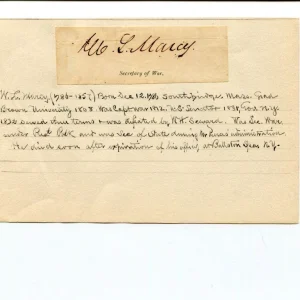 W. L. Marcy
Secretary of War.
W. L. Marcy, (1786-1857) Born Dec 12, 1786 Southbridge Mass. Grad
Brown University 1808. Was Capt War 1812. U.S. Senator 1831, Gov. N.Y.
1832 served three terms & was defeated by W. H. Seward. Was Sec. War
under Pres. Polk and was Sec of State during Pierces administration
He died soon after expiration of his office, at Ballston Spa N.Y.